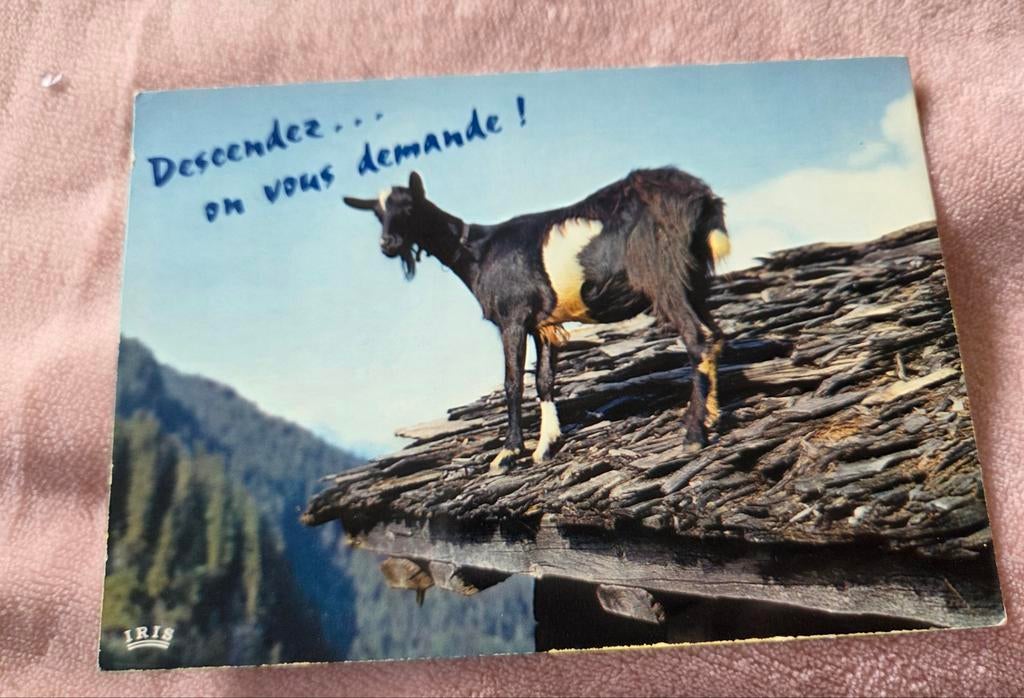 Descendez...
on vous demande !
IRIS